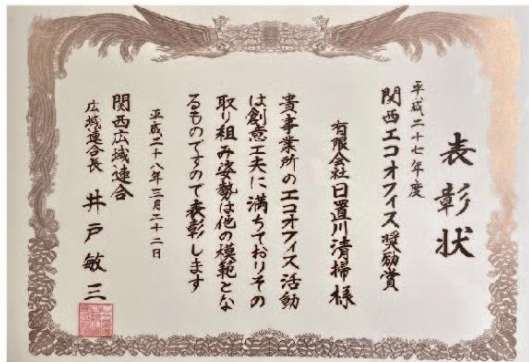 表彰状
平成二十七年度
関西エコオフィス奨励賞
有限会社日置川清掃様
貴事業所のエコオフィス活動
は創意工夫に満ちておりその
取り組み姿勢は他の模範とな
るものですので表彰します
平成二十八年三月二十二日
関西広域連合
広域連合長 井戸敏三